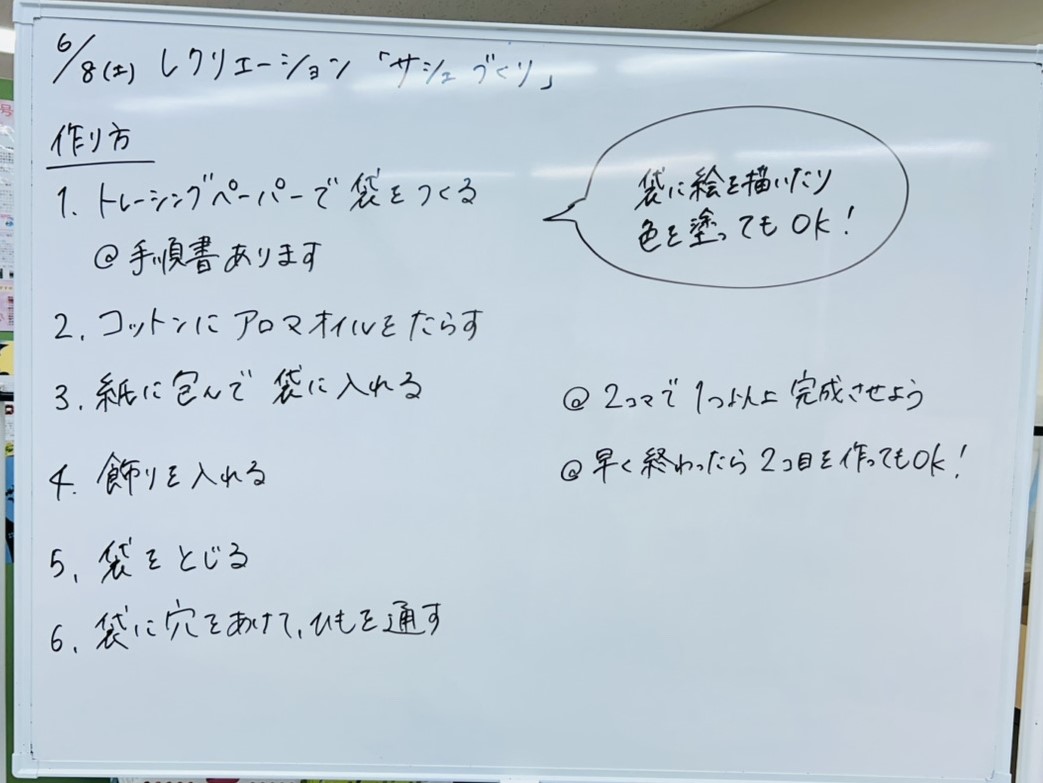 6/8(土) レクリエーション 「サシェづくり」
作り方
1. トレーシングペーパーで袋をつくる
@手順書あります
袋に絵を描いたり
色を塗ってもOK!
2. コットンにアロマオイルをたらす
3. 紙に包んで袋に入れる
4. 飾りを入れる
5. 袋をとじる
6. 袋に穴をあけて、ひもを通す
@ 2コマで1つ以上完成させよう
@早く終わったら2コ目を作ってもOK!